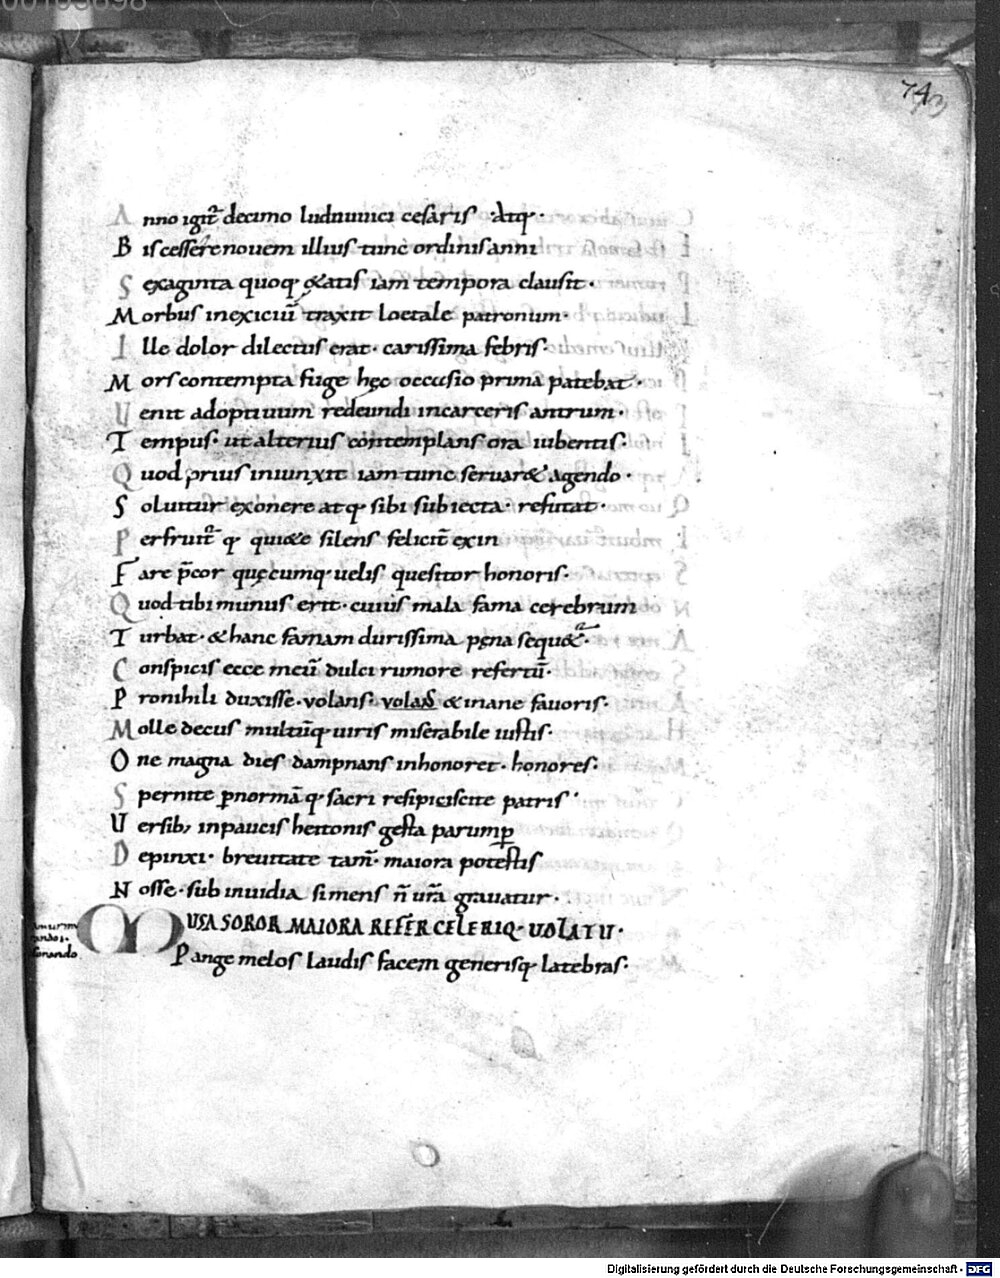 00103698
743
Anno igit̄ decimo ludauuici cesaris · Atq; ·
Bis cessere nouem illius tunc ordinis anni
Sexaginta quoq; & atis iam tempora clausit ·
Morbus inexiciū traxit loetale patronum ·
Ille dolor dilectus erat · carissima febris ·
Mors contempta fuge hęc occasio prima patebat ·
Uenit adoptiuum redeundi incarceris antrum ·
Tempus · ut alterius contemplans ora iubentis ·
Quod prius iniunxit iam tunc seruar& agendo ·
Soluitur exonere atq; sibi subiecta · refutat ·
Perfruit̄ q; qui&e silens felicit̄ exin
Fare p̄cor quęcumq; uelis quesitor honoris ·
Quod tibi munus erit · cuius mala fama cerebrum
Turbat · & hanc famam durissima pęna sequ&̄ ·
Conspicis ecce meū dulci rumore refertū ·
Pronihili duxisse · volans · volas & inane fauoris ·
Molle decus multūq; uiris miserabile iustis ·
O ne magna dies dampnans inhonoret · honores ·
Spernite p̄normā q; sacri resipiscite patris ·
Uersib; inpaucis heitonis gesta parump̄
Depinxi · breuitate tam̄ · maiora potestis
Nosse · sub inuidia si mens n̄ ur̄a grauatur ·
MUSA SOROR MAIORA REFER CELERIQ · UOLATU ·
Pange melos laudis facem generisq; latebras ·
sonando
Digitalisierung gefördert durch die Deutsche Forschungsgemeinschaft - DFG